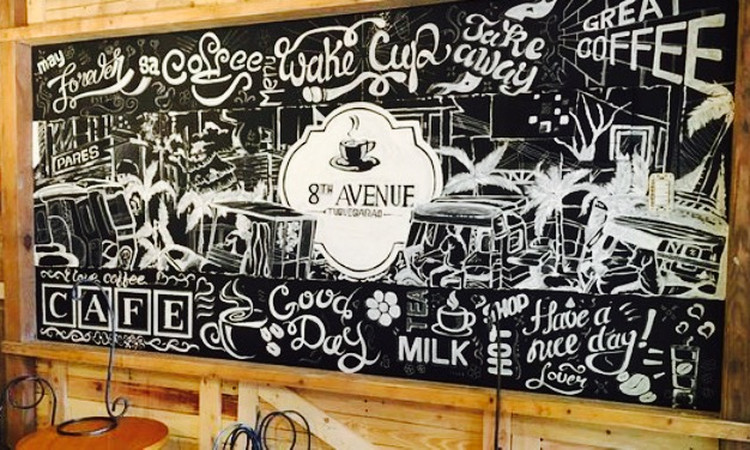 may
Forever
sa
Coffee
Menu
Wake Cup
Take
away
GREAT
COFFEE
PARES
8TH AVENUE
TUGUEGARAO
love coffee
CAFE
Good
Day
TEA
MILK
HOT
Have a
nice day!
Lover